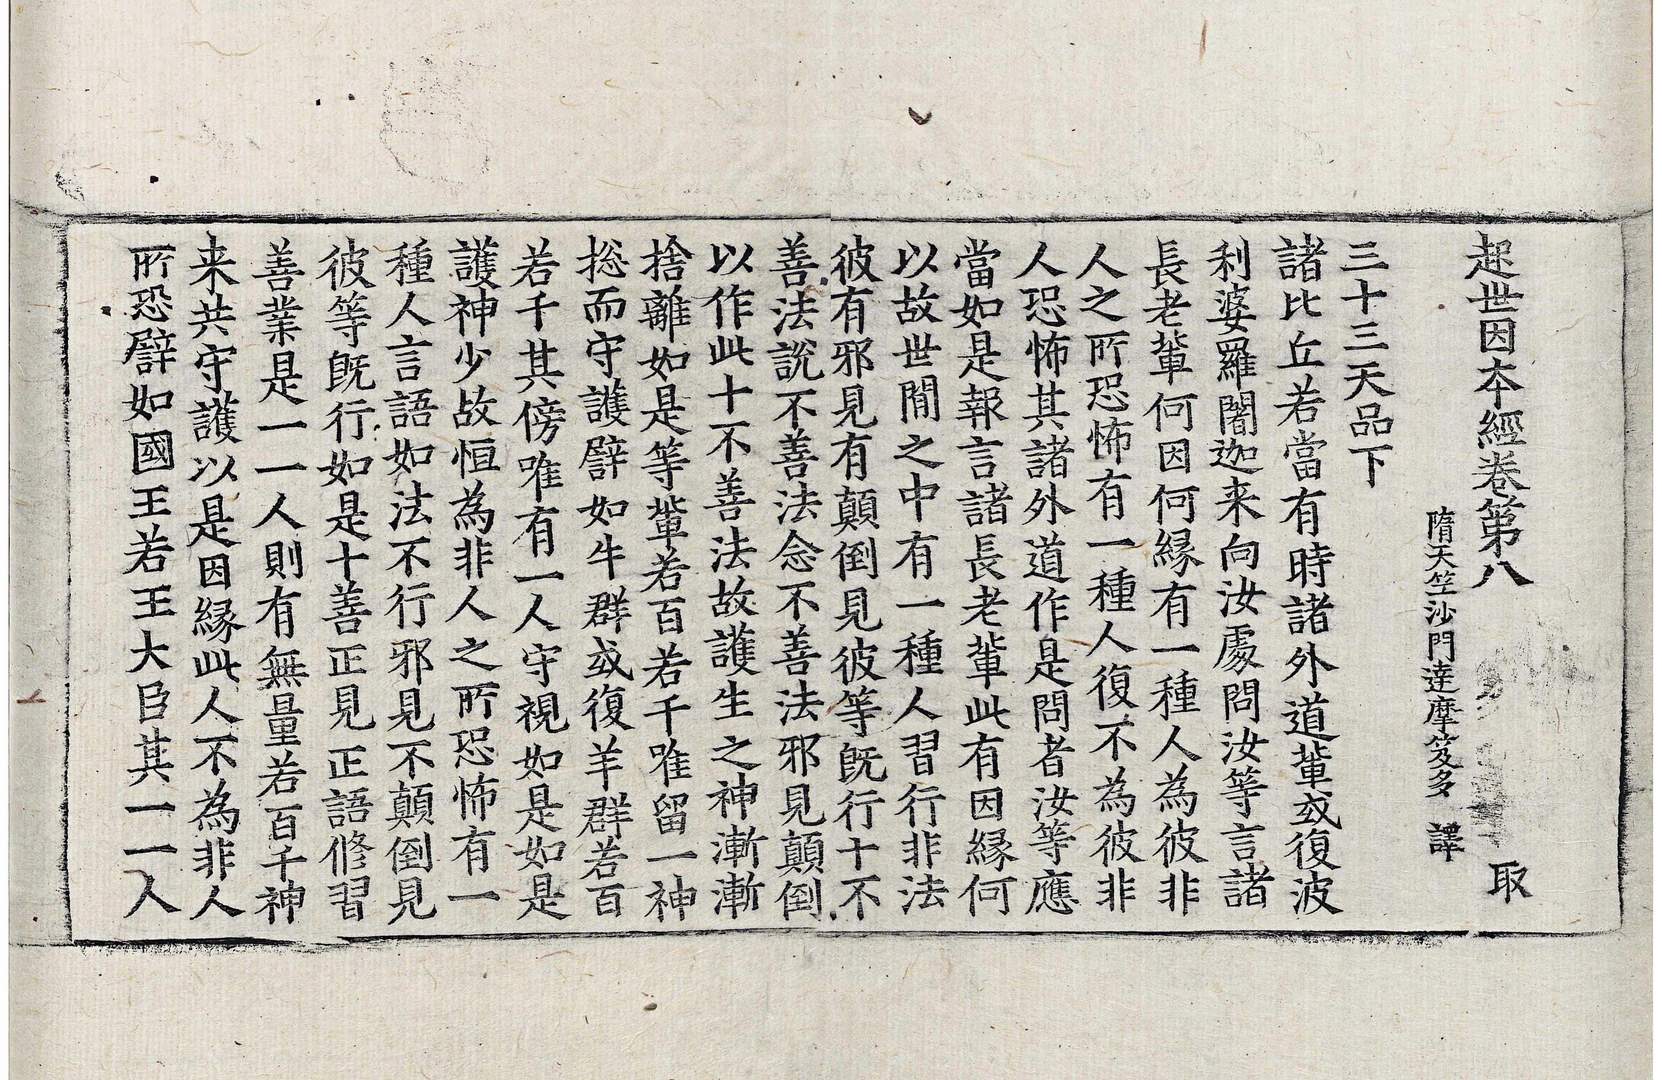 起世因本經卷第八 取
隋天竺沙門達摩笈多 譯
三十三天品下
諸比丘若當有時諸外道輩或復波
利婆羅闍迦来向汝處問汝等言諸
長老輩何因何縁有一種人為彼非
人之所恐怖有一種人復不為彼非
人恐怖其諸外道作是問者汝等應
當如是報言諸長老輩此有因縁何
以故世間之中有一種人習行非法
彼有邪見有顛倒見彼等旣行十不
善法說不善法念不善法邪見顛倒
以作此十不善法故護生之神漸漸
捨離如是等輩若百若千唯留一神
捴而守護譬如牛群或復羊群若百
若千其傍唯有一人守視如是如是
護神少故恒為非人之所恐怖有一
種人言語如法不行邪見不顛倒見
彼等旣行如是十善正見正語修習
善業是一一人則有無量若百千神
来共守護以是因縁此人不為非人
所恐譬如國王若王大臣其一一人